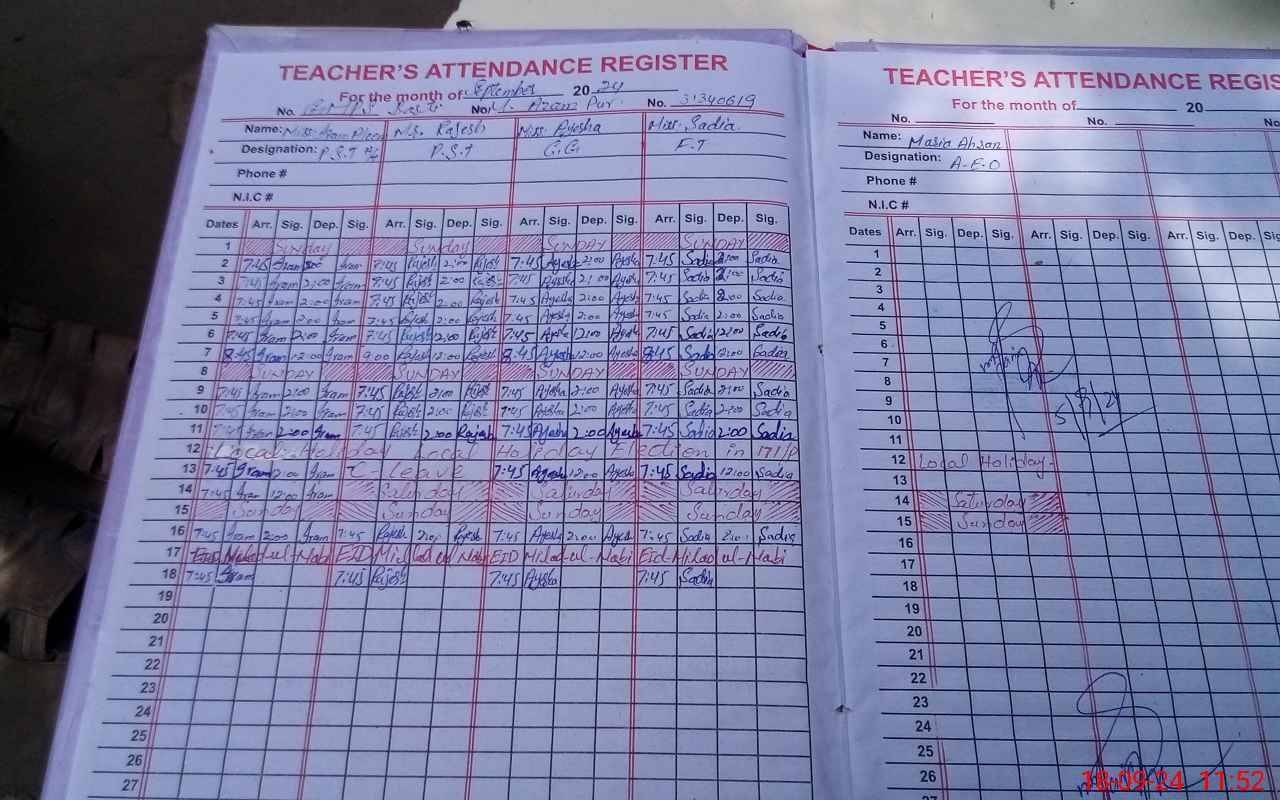 TEACHER'S ATTENDANCE REGISTER
For the month of September 2024
No. No. Azam Pur. No. 31340619
Name: Miss. Iram M.s. Rajesh Miss. Ayesha Miss. Sadia.
Designation: P.S.T P.S.T C.G F.T
Phone #
N.I.C #
Dates Arr. Sig. Dep. Sig. Arr. Sig. Dep. Sig. Arr. Sig. Dep. Sig. Arr. Sig. Dep. Sig.
1 Sunday Sunday SUNDAY SUNDAY
2 7:45 Iram 2:00 Iram 7:45 Rajesh 2:00 Rajesh 7:45 Ayesha 2:00 Ayesha 7:45 Sadia 2:00 Sadia
3 7:45 Iram 2:00 Iram 7:45 Rajesh 2:00 Rajesh 7:45 Ayesha 2:00 Ayesha 7:45 Sadia 2:00 Sadia
4 7:45 Iram 2:00 Iram 7:45 Rajesh 2:00 Rajesh 7:45 Ayesha 2:00 Ayesha 7:45 Sadia 2:00 Sadia
5 7:45 Iram 2:00 Iram 7:45 Rajesh 2:00 Rajesh 7:45 Ayesha 2:00 Ayesha 7:45 Sadia 2:00 Sadia
6 7:45 Iram Iram 7:45 Rajesh Rajesh 7:45 Ayesha 12:00 Ayesha 7:45 Sadia 12:00 Sadia
7 8:45 Iram 12:00 Iram 9:00 Rajesh 12:00 Rajesh 8:45 Ayesha 12:00 Ayesha 8:45 Sadia 12:00 Sadia
8 SUNDAY SUNDAY SUNDAY SUNDAY
9 7:45 Iram 2:00 Iram 7:45 Rajesh 2:00 Rajesh 7:45 Ayesha 2:00 Ayesha 7:45 Sadia 2:00 Sadia
10 7:45 Iram 2:00 Iram 7:45 Rajesh 2:00 Rajesh 7:45 Ayesha 2:00 Ayesha 7:45 Sadia 2:00 Sadia
11 7:45 Iram 2:00 Iram 7:45 Rajesh 2:00 Rajesh 7:45 Ayesha 2:00 Ayesha 7:45 Sadia 2:00 Sadia
12 Local Holiday Local Holiday Election in 171/P
13 7:45 Iram 12:00 Iram C-Leave 7:45 Ayesha 12:00 Ayesha 7:45 Sadia 12:00 Sadia
14 7:45 Iram 12:00 Iram Saturday Saturday Saturday
15 Sunday Sunday Sunday Sunday
16 7:45 Iram 2:00 Iram 7:45 Rajesh 2:00 Rajesh 7:45 Ayesha 2:00 Ayesha 7:45 Sadia 2:00 Sadia
17 Eid Milad-ul-Nabi EID Milad ul Nabi EID Milad-ul-Nabi Eid-Milad ul-Nabi
18 7:45 Iram 7:45 Rajesh 7:45 Ayesha 7:45 Sadia
19
20
21
22
23
24
25
26
27
TEACHER'S ATTENDANCE REGIS
For the month of 20
No. No. No
Name: Maria Ahsan
Designation: A-E-O
Phone #
N.I.C #
Dates Arr. Sig. Dep. Sig. Arr. Sig. Dep. Sig. Arr. Sig. Dep. Sig
1
2
3
4
5
6
7
8
9
5/9/24
10
11
12 Local Holiday-
13
14 Saturday
15 Sunday
16
17
18
19
20
21
22
23
24
25
26
18-09-24 11:52